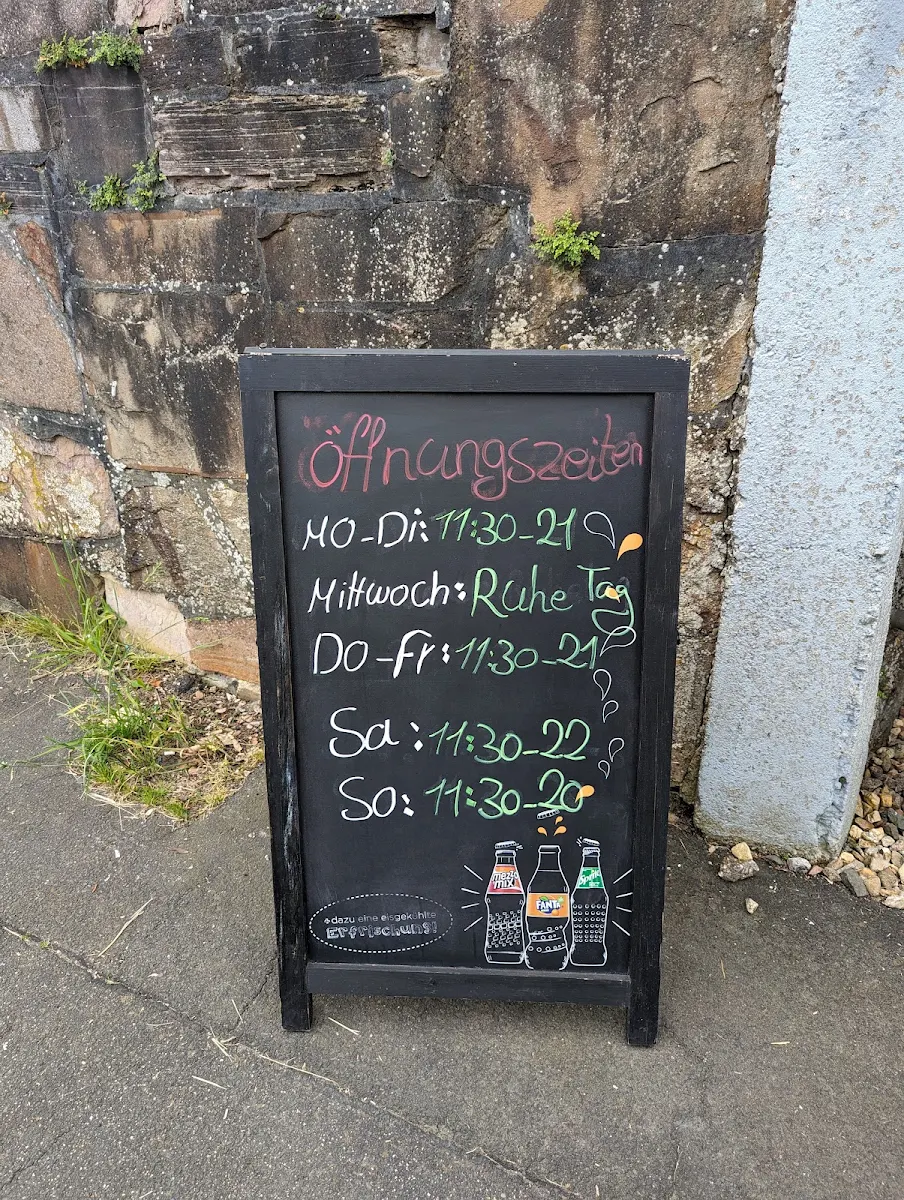 Öffnungszeiten
MO-Di: 11:30-21
Mittwoch: Ruhe Tag
Do-Fr: 11:30-21
Sa: 11:30-22
So: 11:30-20
mezzo mix
FANTA
Sprite
dazu eine eisgekühlte
Erfrischung!